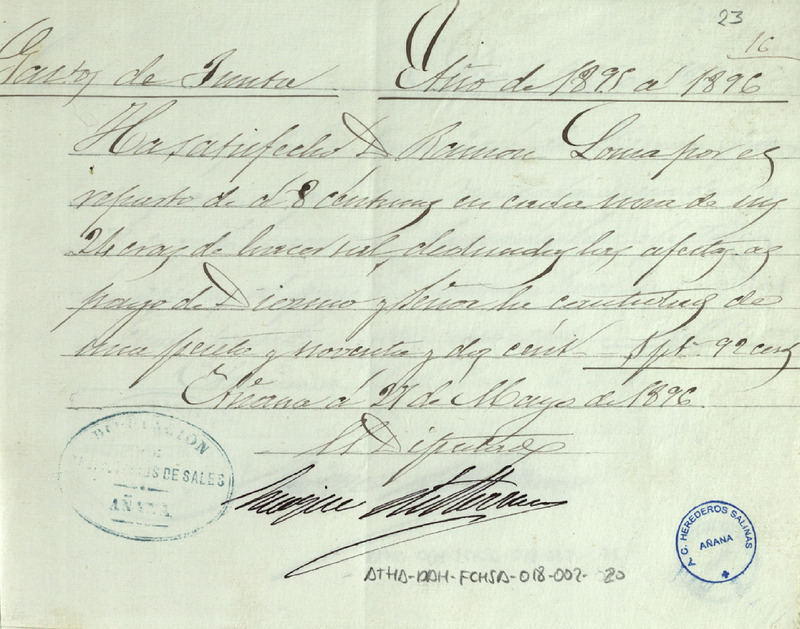 23
16
Gastos de Junta Año de 1895 á 1896
Ha satisfecho D Ramon Loma por el
reparto de á 8 centimos en cada una de sus
24 eras de hacer sal, deducidas las afectas al
pago de Diezmo y Señor la cantidad de
una peseta y noventa y dos cent 1 pt 92 cens
Añana á 27 de Mayo de 1896
El Diputado
DIPUTACIÓN
DE SALES
AÑANA
A. C. HEREDEROS SALINAS
AÑANA
ATHA-DAH-FCHSA-018-002-20